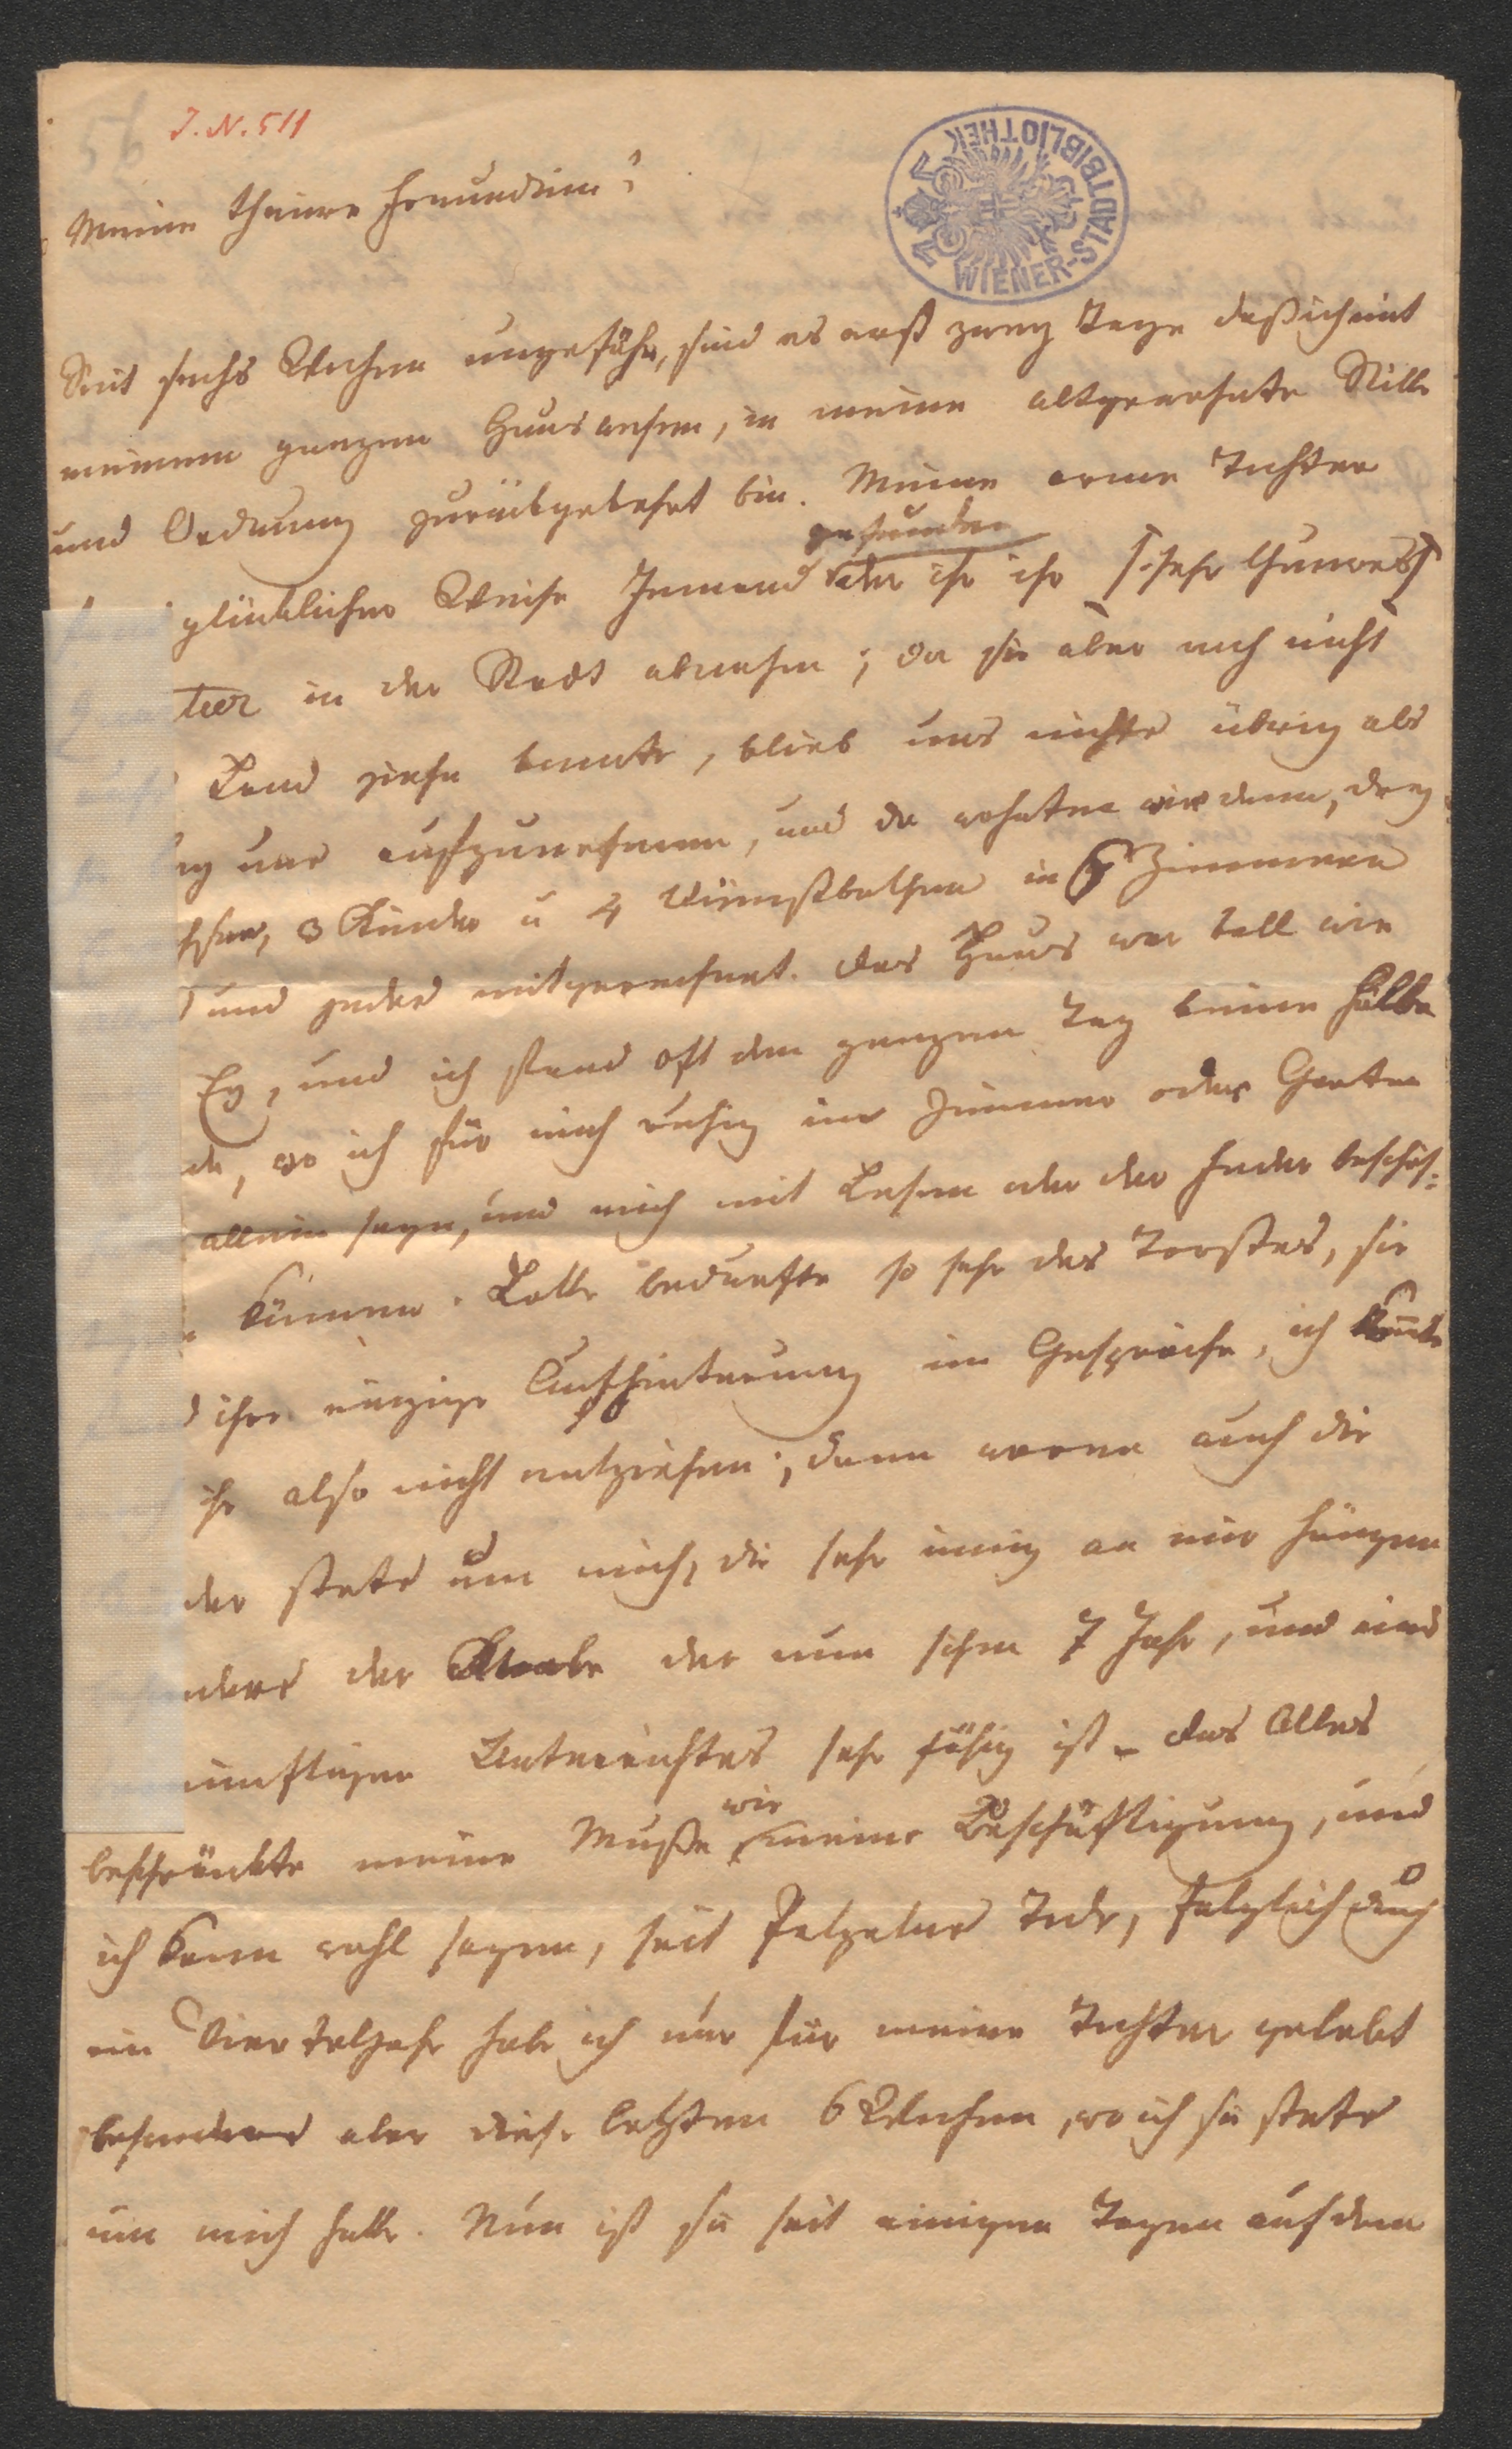 56
J. N. 511
WIENER-STADTBIBLIOTHEK
Meine theure Freundinn!
Seit sechs Wochen ungefähr, sind es erst zwey Tage daß ich mit
meinem ganzen Hauswesen, in meine altgewohnte Stille
und Ordnung zurückgekehrt bin. Meine arme Tochter
gefunden
glücklicher Weise Jemand der ihr ihr sehr theures
tier in der Stadt abnahm; da sie aber noch nicht
Land ziehn konnte, blieb uns nichts übrig als
uns aufzunehmen, und da wohnten wir denn, drey
3 Kinder u 4 Dienstbothen in 6 Zimmern
und jedes mitgerechnet. Das Haus war voll wie
Ey, und ich fand oft den ganzen Tag keine halbe
de, wo ich für mich ruhig im Zimmer oder Garten
allein seyn, und mich mit Lesen oder der Feder beschäf-
können. Lotte bedurfte so sehr des Trostes, sie
ihre einzige Aufheiterung im Gespräche, ich konnte
ihr also nicht entziehen; dann waren auch die
der stets um mich, die sehr innig an mir hängen
ders der Knabe der nun schon 7 Jahr, und eines
nünftigen Unterrichtes sehr fähig ist – das Alles
wie
beschränkte meine Muße meine Beschäftigung, und
ich kann wohl sagen, seit Pelzelns Tode, folglich durch
ein Vierteljahr habe ich nur für meine Tochter gelebt
besonders aber diese letzten 6 Wochen, wo ich sie stets
um mich hatte. Nun ist sie seit einigen Tagen auf dem